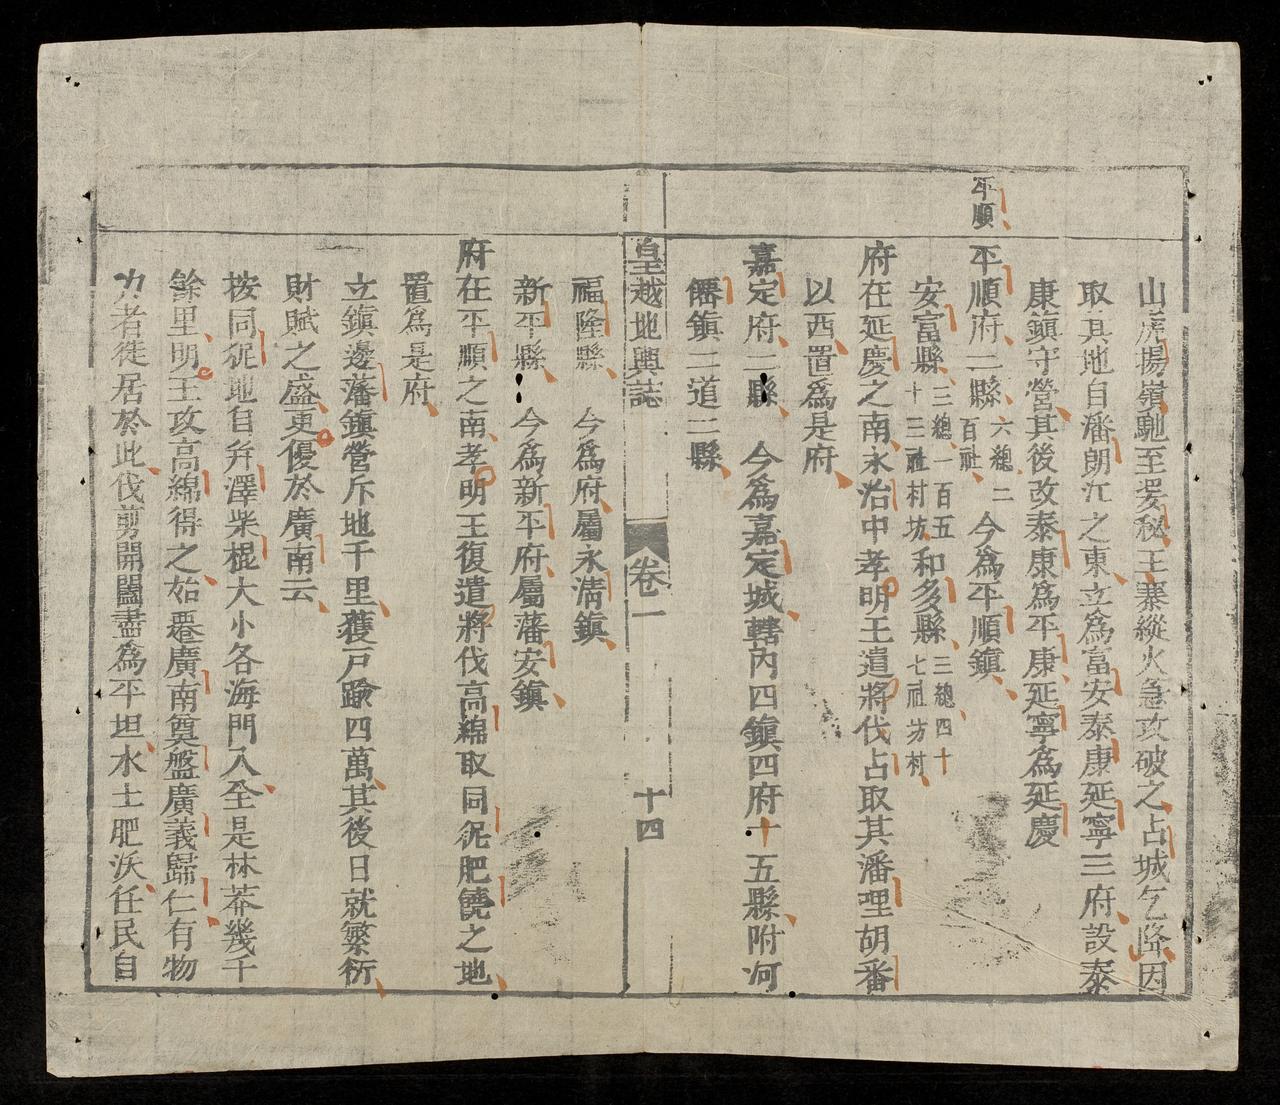 平順
山虎揚嶺馳至婆秘王寨縱火急攻破之占城乞降因
取其地自潘朗江之東立爲富安泰康延寧三府設泰
康鎮守營其後改泰康爲平康延寧爲延慶
平順府二縣六總二百社今爲平順鎮
安富縣三總一百五十三社村坊和多縣三總四十七社坊村
府在延慶之南永治中孝明王遣將伐占取其潘哩胡番
以西置爲是府
嘉定府二縣今爲嘉定城轄內四鎮四府十五縣附河
僊鎮二道二縣
皇越地輿誌
卷一
十四
福隆縣今爲府屬永清鎮
新平縣今爲新平府屬藩安鎮
府在平順之南孝明王復遣將伐高綿取同狔肥饒之地
置爲是府
立鎮邊藩鎮營斥地千里獲戶踰四萬其後日就繁衍
財賦之盛更優於廣南云
按同狔地自弁澤柴棍大小各海門入全是林莽幾千
餘里明王攻高綿得之始遷廣南奠盤廣義歸仁有物
力者徙居於此伐剪開闢盡爲平坦水土肥沃任民自